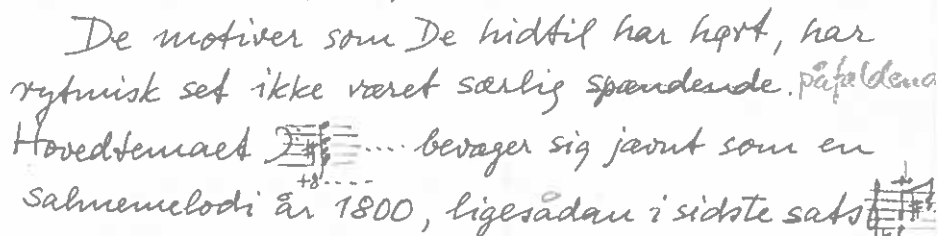 De motiver som De hidtil har hørt, har
rytmisk set ikke været særlig spændende. påfaldend
Hovedtemaet ..... bevæger sig jævnt som en
+8.....
salmemelodi år 1800, ligesådan i sidste sats